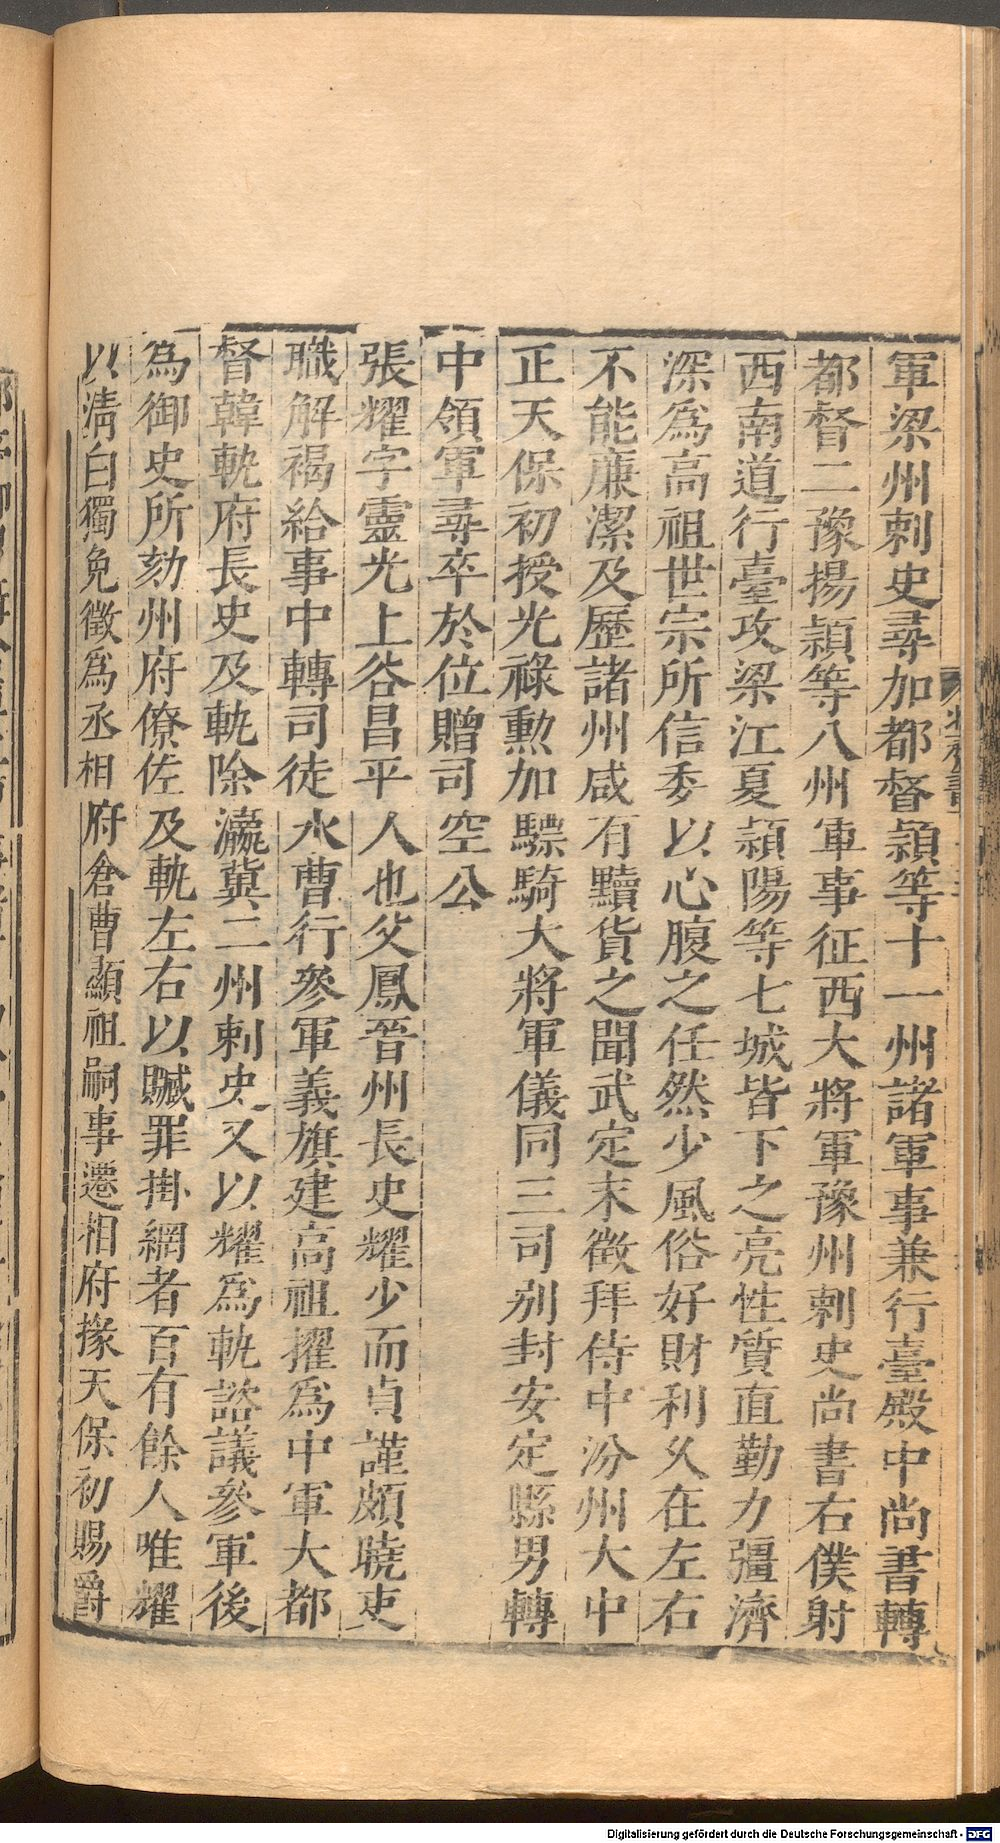 軍梁州刺史尋加都督潁等十一州諸軍事兼行臺殿中尚書轉
都督二豫揚潁等八州軍事征西大將軍豫州刺史尚書右僕射
西南道行臺攻梁江夏潁陽等七城皆下之亮性質直勤力彊濟
深爲高祖世宗所信委以心腹之任然少風俗好財利久在左右
不能廉潔及歷諸州咸有黷貨之聞武定末徵拜侍中汾州大中
正天保初授光祿勳加驃騎大將軍儀同三司别封安定縣男轉
中領軍尋卒於位贈司空公
張耀字靈光上谷昌平人也父鳳晉州長史耀少而貞謹頗曉吏
職解褐給事中轉司徒水曹行參軍義旗建高祖擢爲中軍大都
督韓軌府長史及軌除瀛冀二州刺史又以耀爲軌諮議參軍後
為御史所劾州府僚佐及軌左右以贓罪掛網者百有餘人唯耀
以清白獨免徵爲丞相府倉曹顯祖嗣事遷相府掾天保初賜爵
Digitalisierung gefördert durch die Deutsche Forschungsgemeinschaft - DFG